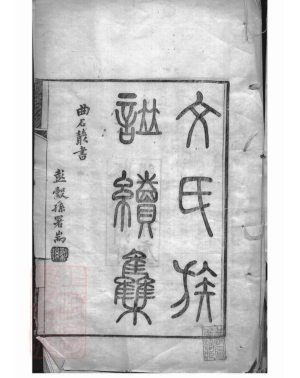 文氏族
譜續集
曲石叢書
彭穀孫署耑